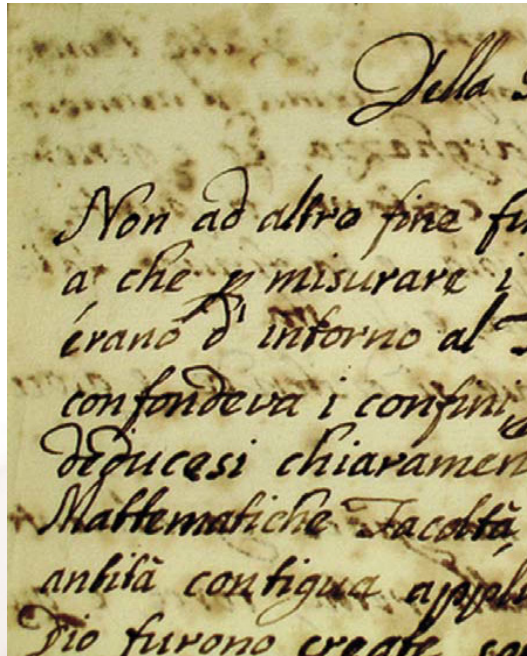 Della
Non ad altro fine fu
a che p misurare i
érano d'intorno al
confondeva i confini,
deducesi chiaramen
Mattematiche Facoltà
antità contigua appli
Dio furono create